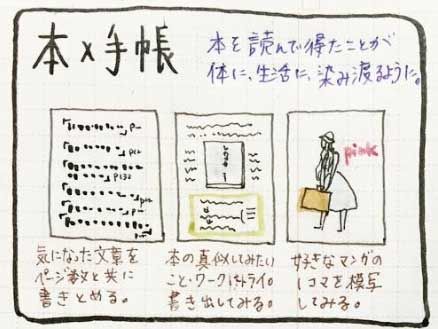 本×手帳
本を読んで得たことが
体に、生活に、染み渡るように。
pink
気になった文章を
ページ数と共に
書きとめる。
本の真似してみたい
こと・ワークはトライ。
書き出してみる。
好きなマンガの
1コマを模写
してみる。